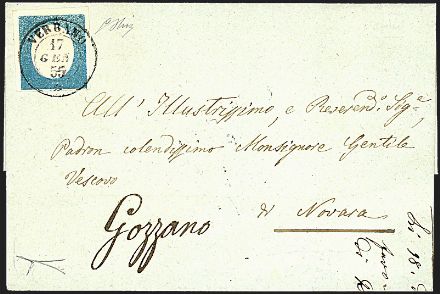 VERBANO
17
GEN
55
All' Illustrissimo, e Reverend.o Sig.e
Padron colendissimo Monsignore Gentile
Vescovo
di Novara
Gozzano